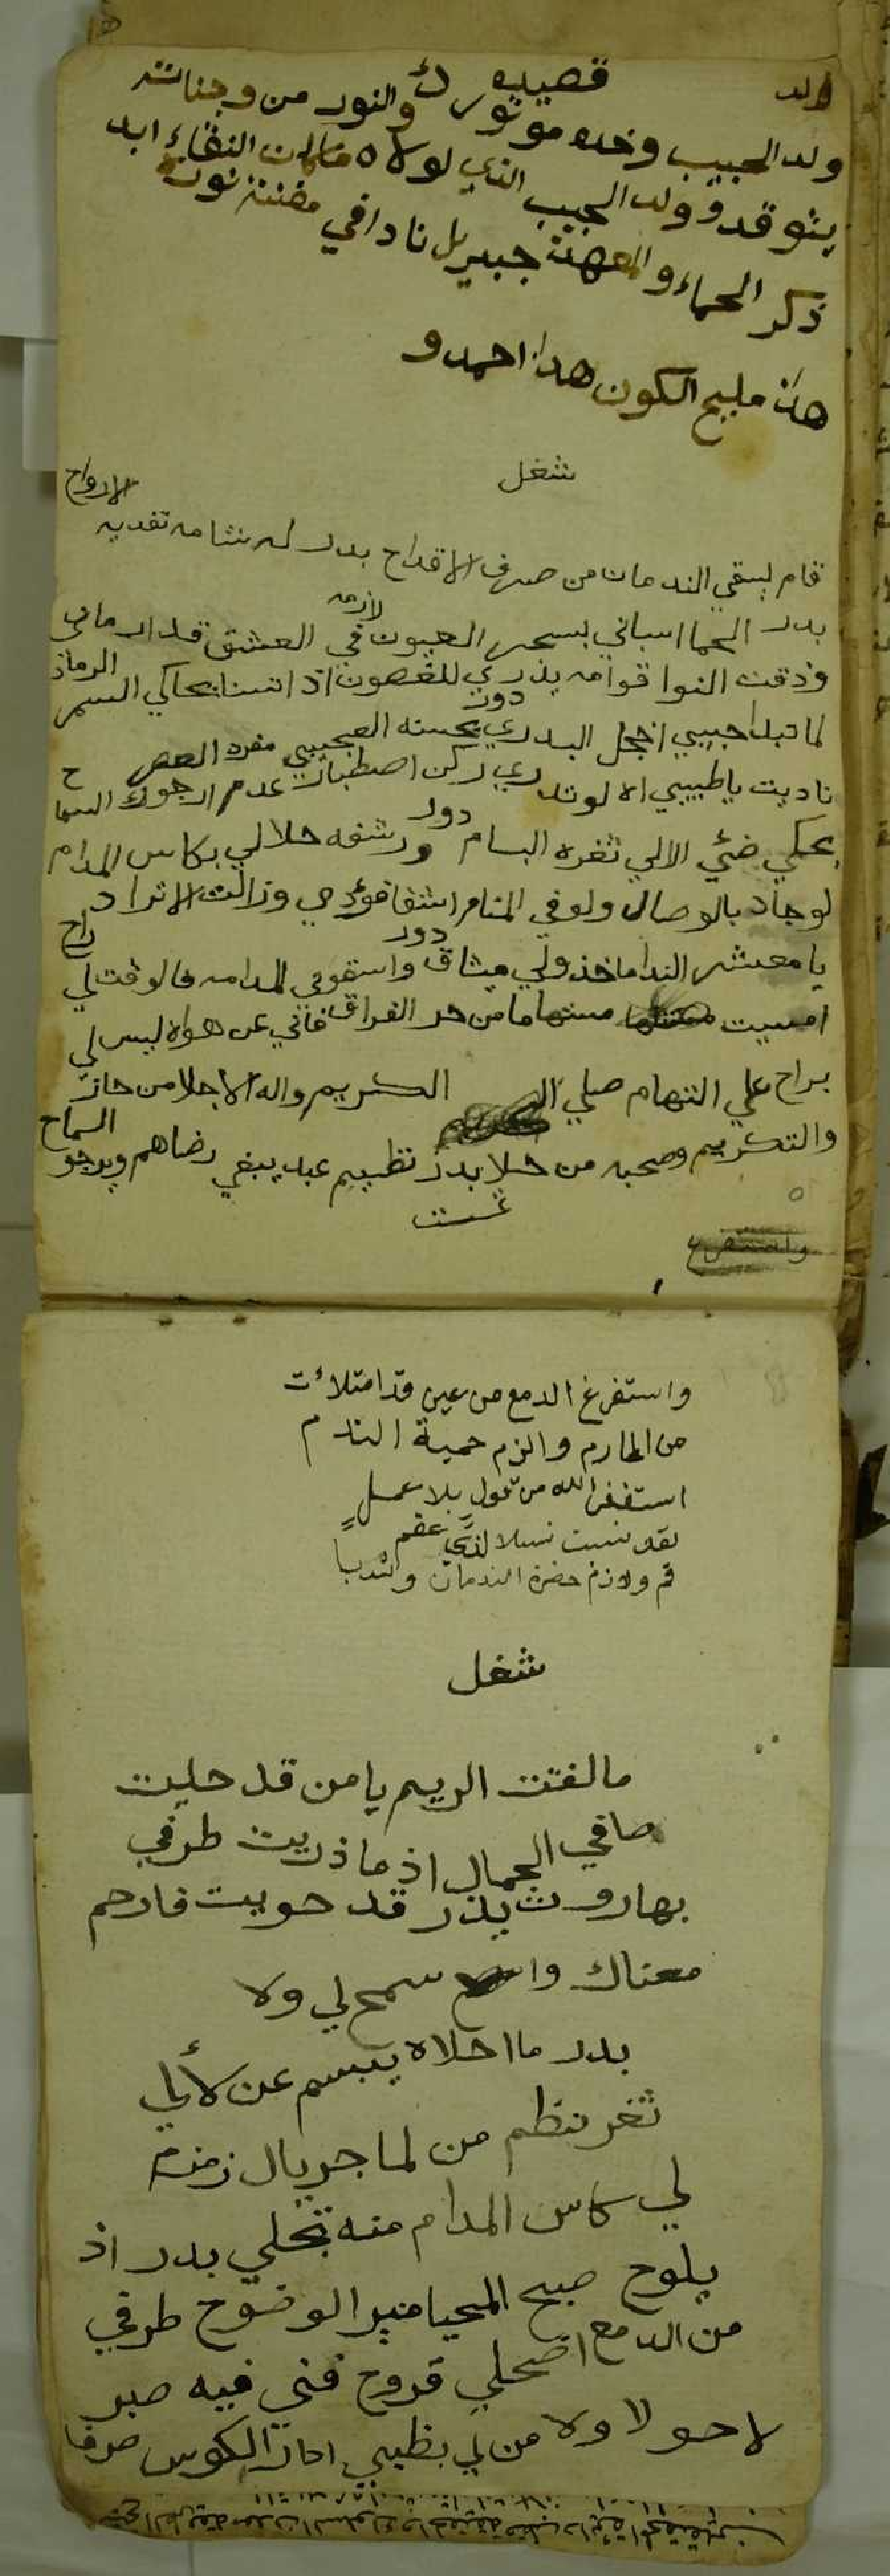 قصيده
ولد الحبيب وخده مورد والنور من وجناته
يتوقدو ولد الحبيب الذي لولاه ماكان النقاء ابد
ذكر الحماء والمعهدن جبريل نادا في
هذا مليح الكون هذا احمدو
شغل
قام يسقي الندمان من صرف الاقداح بدر له شامه تفديه الارواح
بدر الحما اسباني بسحر العيون في العشق قد ارماني
لازمه
وذقت النوا قوامه يذري للغصون اذ انثنا يحاكي السمر الرماح
دور
لما تبدا حبيبي اخجل البدري بحسنه العجيبي مفرد العصر
ناديت ياطبيبي الا لوتدري ركن اصطباري عدم ارجوك السماح
دور
يحكي ضئي الالي ثغره البسام ورشفه حلالي بكاس المدام
لوجاد بالوصال ولو في المنام اشفا فؤدي وزالت الاتراح
دور
يا معشر الندا ماخذولي ميثاق واسقوني المدامه فالوقت لي راح
امسيت مستهاما من حر الفراق فاني عن هواه ليس لي
براح علي التهام صلي الكريم واله الاجلا من حاز
والتكريم وصحبه من حلا بدر نظيم عبد يبغي رضاهم ويرجو السماح
تمت
واستفرغ
واستفرغ الدمع من عين قد امتلاءت
من المحارم والزم حمية الندم
استغفر الله من قول بلا عمل
لقد نسبت نسلا لذي عقم
قم ولازم حضرة الندمان واندبا
شغل
مالفتت الريم يامن قد حليت
صافي الجمال اذ ما ذريت طرفي
بهاروت بدر قد حويت فارحم
معناك واسمح لي ولا
بدر ما احلاه يبسم عن لألي
ثغر نظم من لما جريال زمزم
لي كاس المدام منه تجلي بدر اذ
يلوح صبح المحيا منير الوضوح طرفي
من الدمع اضحلي قروح فني فيه صبر
لاحولا ولا من لي بظبي ادار الكوس صرفا